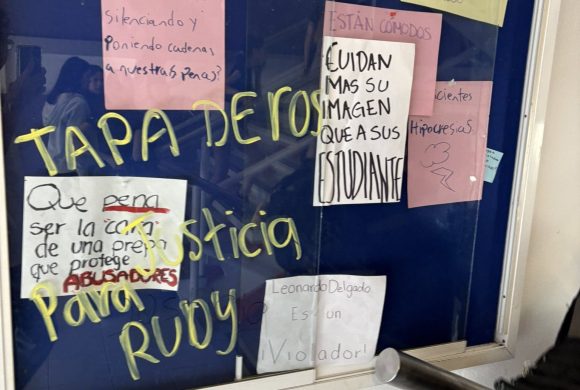 Silenciando y
Poniendo cadenas
a nuestras penas?
ESTÁN CÓMODOS
CUIDAN
MAS SU
IMAGEN
QUE A SUS
ESTUDIANTE
Hipocresias
TAPADEROS
Que pena
ser la "cara"
de una prepa
que protege
ABUSADORES
Justicia
Para
RUDY
Leonardo Delgado
Es un
¡Violador!